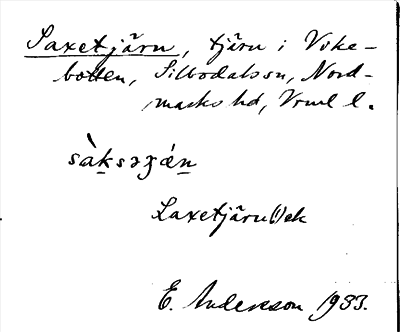 Saxetjärn, tjärn i Vike-
botten, Silbodals sn, Nord-
marks hd, Vrml l.
sàksəʒǽn
Laxetjärn(!) ek
E. Andersson 1933.